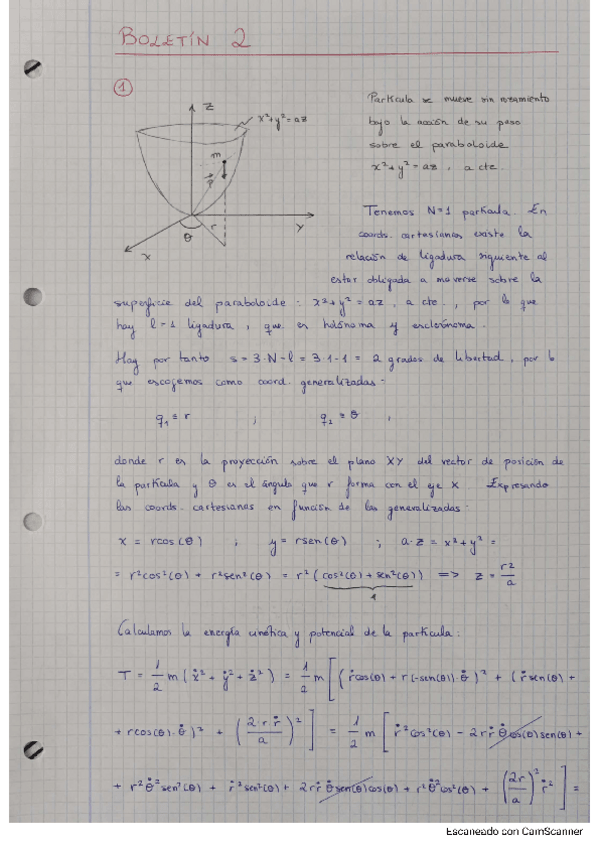 BOLETÍN 2
1
Z
x²+y²=az
m
r
Y
θ
X
Partícula se mueve sin rozamiento
bajo la acción de su peso
sobre el paraboloide
x²+y²=az, a cte.
Tenemos N=1 partícula. En
coords. cartesianas existe la
relación de ligadura siguiente al
estar obligada a moverse sobre la
superficie del paraboloide: x²+y²=az, a cte., por lo que
hay l=1 ligadura, que es holónoma y esclerónoma.
Hay por tanto s=3·N-l=3·1-1=2 grados de libertad, por lo
que escogemos como coord. generalizadas:
q₁≡r ; q₂≡θ ,
donde r es la proyección sobre el plano XY del vector de posición de
la partícula y θ es el ángulo que r forma con el eje X. Expresando
las coords. cartesianas en función de las generalizadas:
x = rcos(θ) ; y = rsen(θ) ; a·z = x²+y² =
= r²cos²(θ) + r²sen²(θ) = r²(cos²(θ)+sen²(θ)) => z = r²/a
1
Calculamos la energía cinética y potencial de la partícula:
T = 1/2 m(ẋ²+ẏ²+ż²) = 1/2 m[(ṙcos(θ) + r(-sen(θ))·θ̇)² + (ṙsen(θ) +
+ rcos(θ)·θ̇)² + (2·r·ṙ/a)²] = 1/2 m[ṙ²cos²(θ) - 2rṙθ̇cos(θ)sen(θ) +
+ r²θ̇²sen²(θ) + ṙ²sen²(θ) + 2rṙθ̇sen(θ)cos(θ) + r²θ̇²cos²(θ) + (2r/a)²ṙ²] =
Escaneado con CamScanner